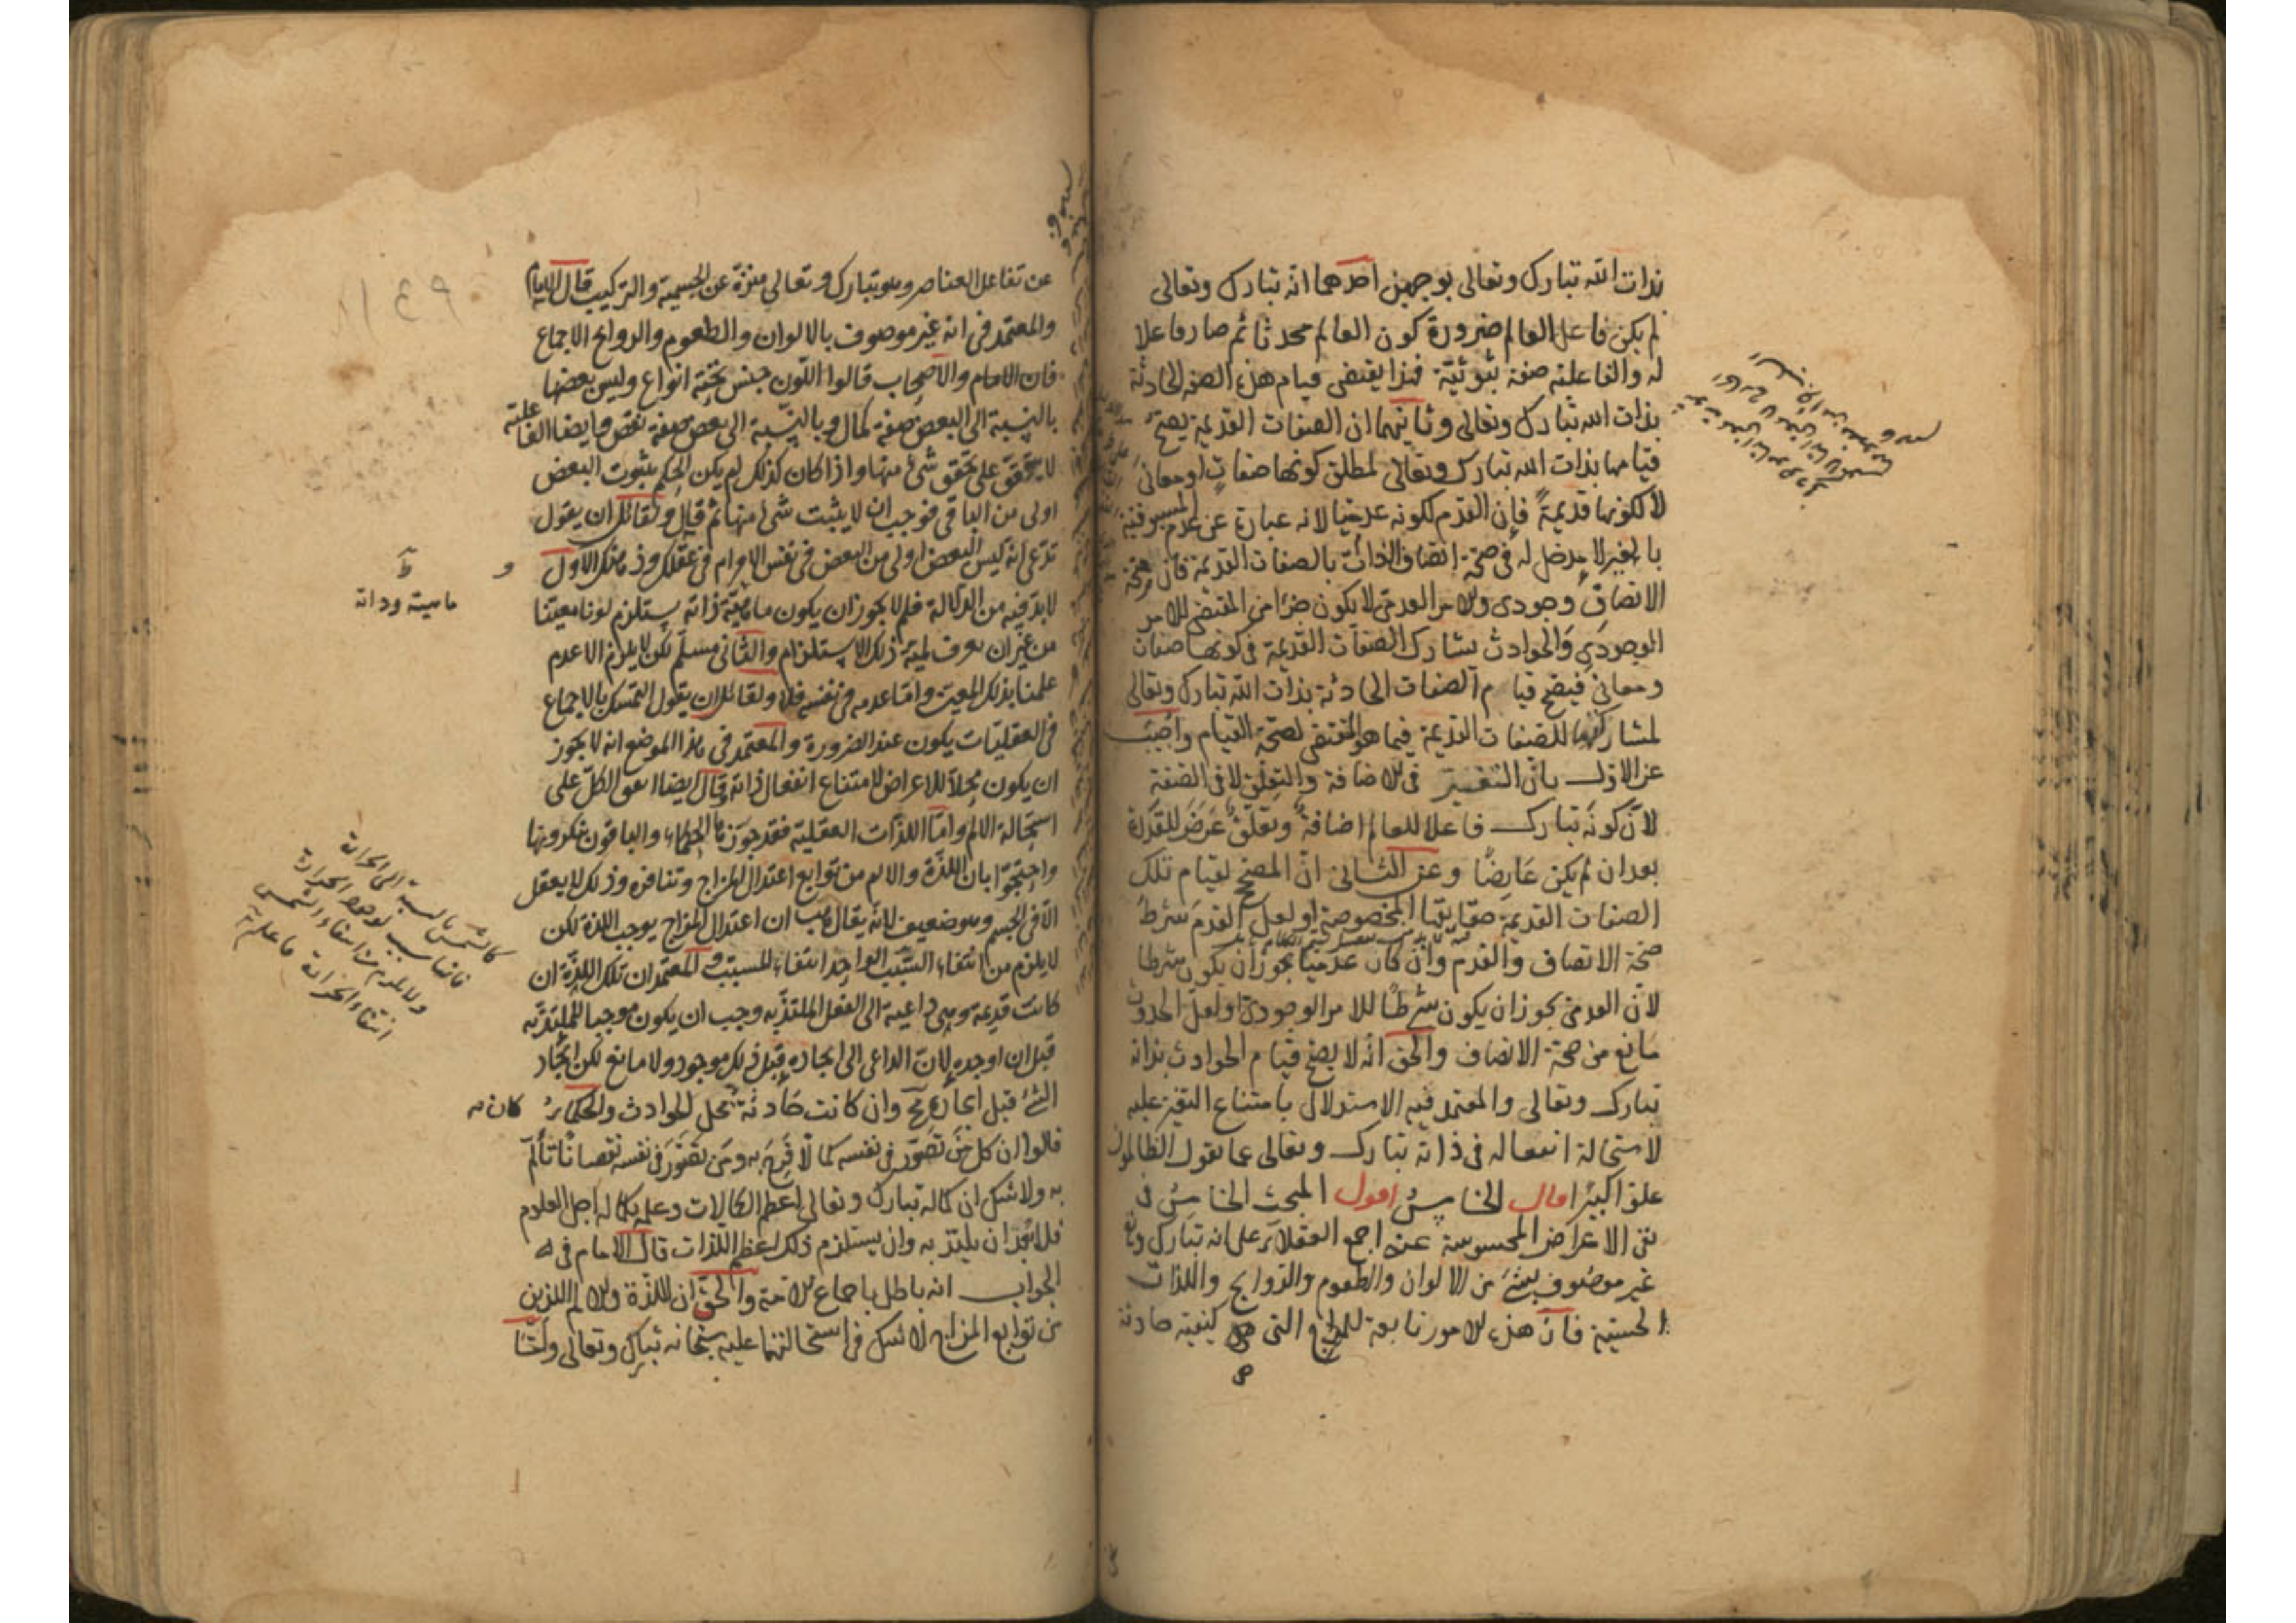 بذات الله تبارك وتعالى بوجهين احدهما انه تبارك وتعالى
لم يكن فاعل العالم ضرورة كون العالم محدثا ثم صار فاعلا
له والفاعلية صفة ثبوتية فهذا يقتضى قيام هذه الصفة الحادثة
بذات الله تبارك وتعالى وثانيهما ان الصفات القديمة يصح
قيامها بذات الله تبارك وتعالى لمطلق كونها صفات او معانى
لا لكونها قديمة فان القدم لكونه عدميا لانه عبارة عن عدم المسبوقية
بالغير لا مدخل له فى صحة اتصاف الذات بالصفات القديمة فان صحة
الاتصاف وجودى والامر العدمى لا يكون جزا من المقتضى للامر
الوجودى والحوادث يشارك الصفات القديمة فى كونها صفات
ومعانى فيصح قيام الصفات الحادثة بذات الله تبارك وتعالى
لمشاركتها للصفات القديمة فيما هو المقتضى لصحة القيام واجيب
عن الاول بان التغير فى الاضافة والتعلق لا فى الصفة
لان كونه تبارك فاعلا للعالم اضافة وتعلق عرض للقدرة
بعد ان لم يكن عارضا وعن الثانى ان المصحح لقيام تلك
الصفات القديمة حقايقها المخصوصة او لعل القدم شرط
صحة الاتصاف والقدم وان كان عدميا يجوز ان يكون شرطا
لان العدمى يجوز ان يكون شرطا للامر الوجودى او لعل الحدوث
مانع من صحة الاتصاف والحق انه لا يصح قيام الحوادث بذاته
تبارك وتعالى والمعتمد فيه الاستدلال بامتناع التغير عليه
لاستحالة انفعاله فى ذاته تبارك وتعالى عما يقول الظالمون
علوا كبيرا قال الخامس اقول المبحث الخامس فى
نفى الاعراض المحسوسة عنه اجمع العقلاء على انه تبارك وتع
غير موصوف بشئ من الالوان والطعوم والروايح واللذات
الحسية فان هذه الامور تابعة للمزاج التى هى كيفية حادثة
عن تفاعل العناصر وهو تبارك وتعالى منزه عن الجسمية والتركيب قال الامام
والمعتمد فى انه غير موصوف بالالوان والطعوم والروايح الاجماع
فان الامام والاصحاب قالوا اللون جنس تحته انواع وليس بعضها
بالنسبة الى البعض صفة كمال وبالنسبة الى بعض صفة نقص وايضا الفاعلية
لا يتوقف على تحقق شئ منها واذا كان كذلك لم يكن الحكم بثبوت البعض
اولى من الباقى فوجب ان لا يثبت شئ منها ثم قال ولقائل ان يقول
تدعى انه ليس البعض اولى من البعض فى نفس الامر ام فى عقلك وذهنك الاول
لا بد فيه من الدلالة فلم لا يجوز ان يكون ماهية ذاته يستلزم لونا معينا
من غير ان يعرف لمية ذلك الاستلزام والثانى مسلم لكن لا يلزم الا عدم
علمنا بذلك المعين واما عدمه فى نفسه فلا ولقائل ان يقول التمسك بالاجماع
فى العقليات يكون عند الضرورة والمعتمد فى هذا الموضع انه لا يجوز
ان يكون محلا للاعراض لامتناع انفعال ذاته وقال ايضا اتفق الكل على
استحالة الالم واما اللذات العقلية فقد جوزها الحكماء والباقون ينكرونها
واحتجوا بان اللذة والالم من توابع اعتدال المزاج وتنافره وذلك لا يعقل
الا فى الجسم وهو ضعيف لانه يقال هب ان اعتدال المزاج يوجب اللذة لكن
لا يلزم من انتفاء السبب الواحد انتفاء المسبب والمعتمد ان تلك اللذة ان
كانت قديمة وهى داعية الى الفعل الملتذ به وجب ان يكون موجبا للملتذ به
قبل ان اوجده لان الداعى الى ايجاده قبل ذلك موجود ولا مانع لكن ايجاد
الشئ قبل ايجاده مح وان كانت حادثة كان محل الحوادث والحكماء
قالوا ان كل من تصور فى نفسه كمالا فرح به ومن تصور فى نفسه نقصانا تألم
به ولا شك ان كماله تبارك وتعالى اعظم الكمالات وعلمه بكماله اجل العلوم
فلا بعد ان يلتذ به وان يستلزم ذلك اعظم اللذات قال الامام فى
الجواب انه باطل باجماع الامة والحق ان اللذة والالم اللذين
من توابع المزاج لا شك فى استحالتهما عليه سبحانه تبارك وتعالى ولما
ماهيته وذاته
كالشمس بالنسبة الى الحرارة
فانها سبب لوجود الحرارة
ولا يلزم من انتفاء الشمس
انتفاء الحرارة فاعلم